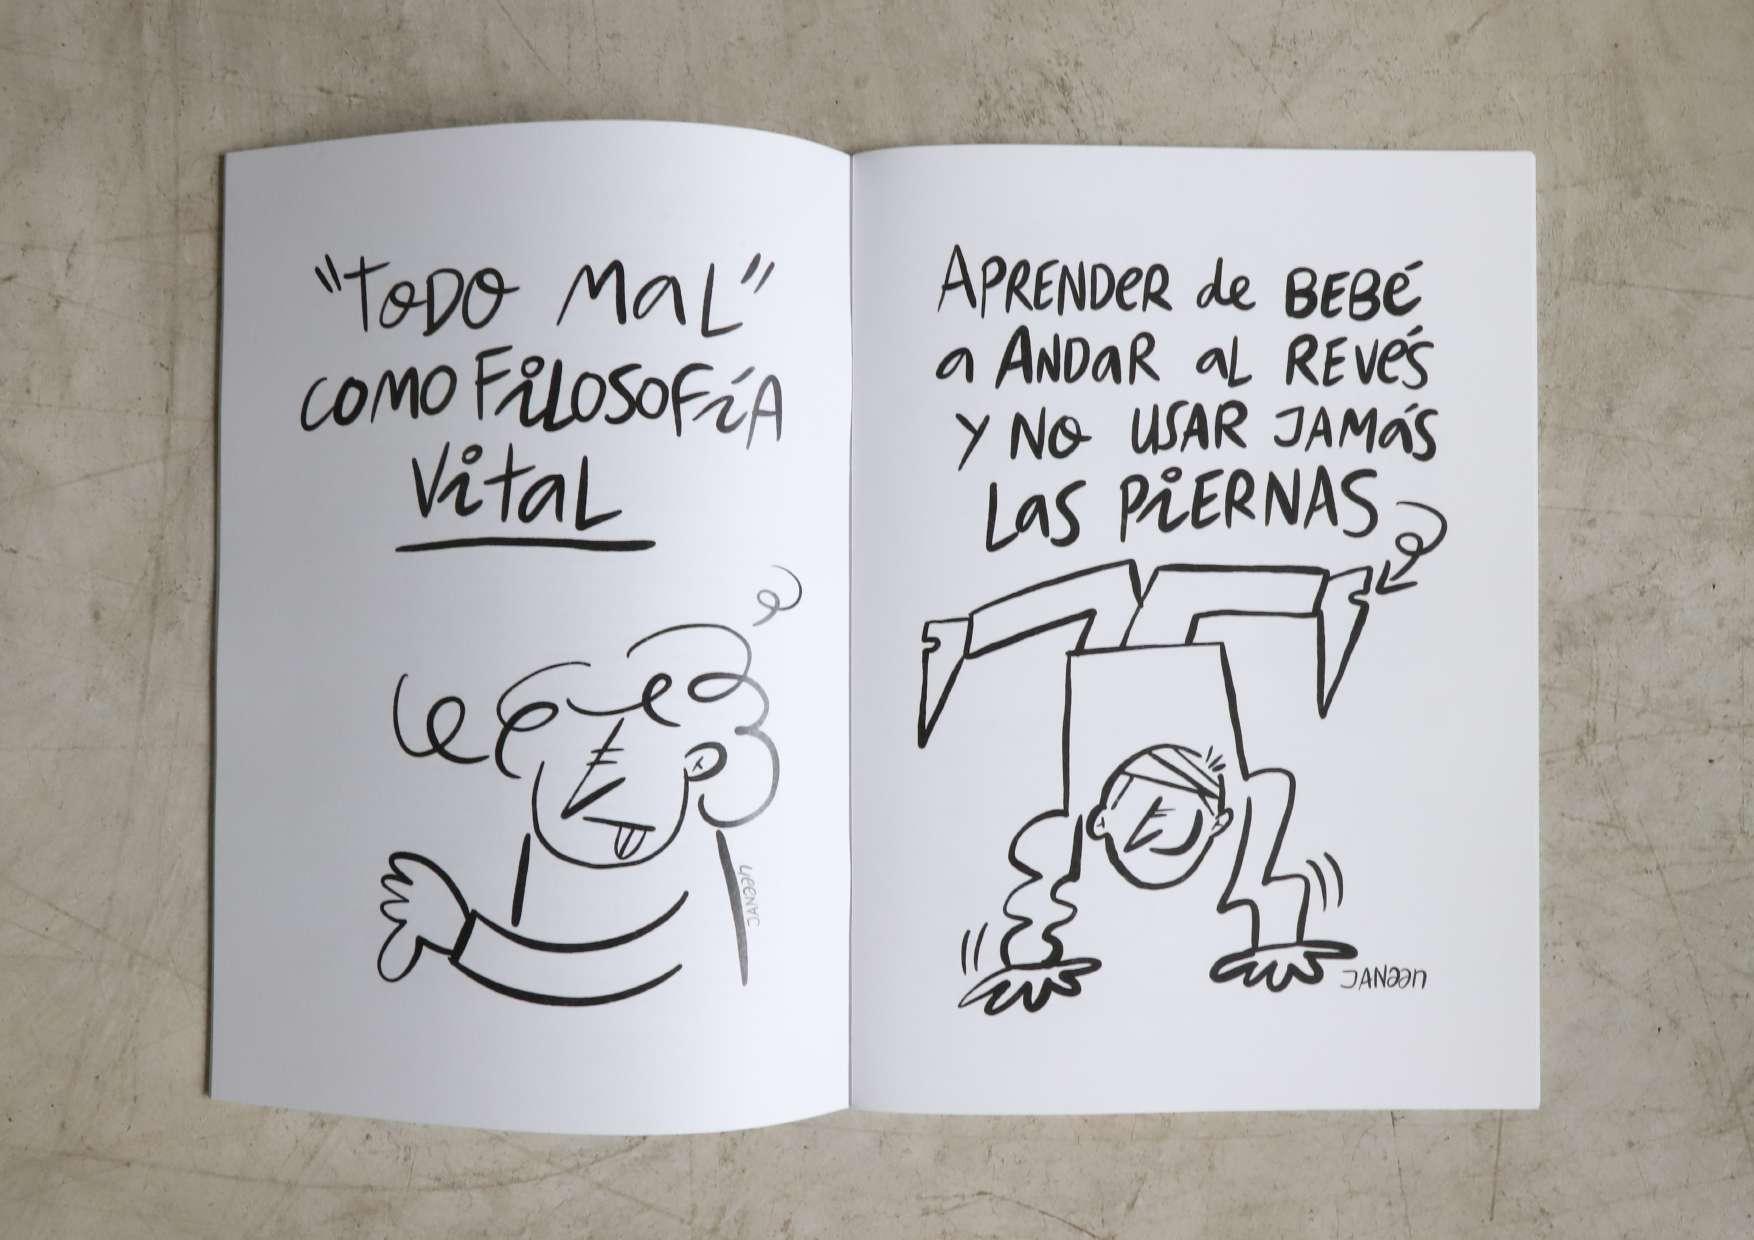 "TODO MAL"
COMO FILOSOFÍA
VITAL
JANƏƏN
APRENDER de BEBÉ
a ANDAR AL REVÉS
Y NO USAR JAMÁS
LAS PIERNAS
JANƏƏN